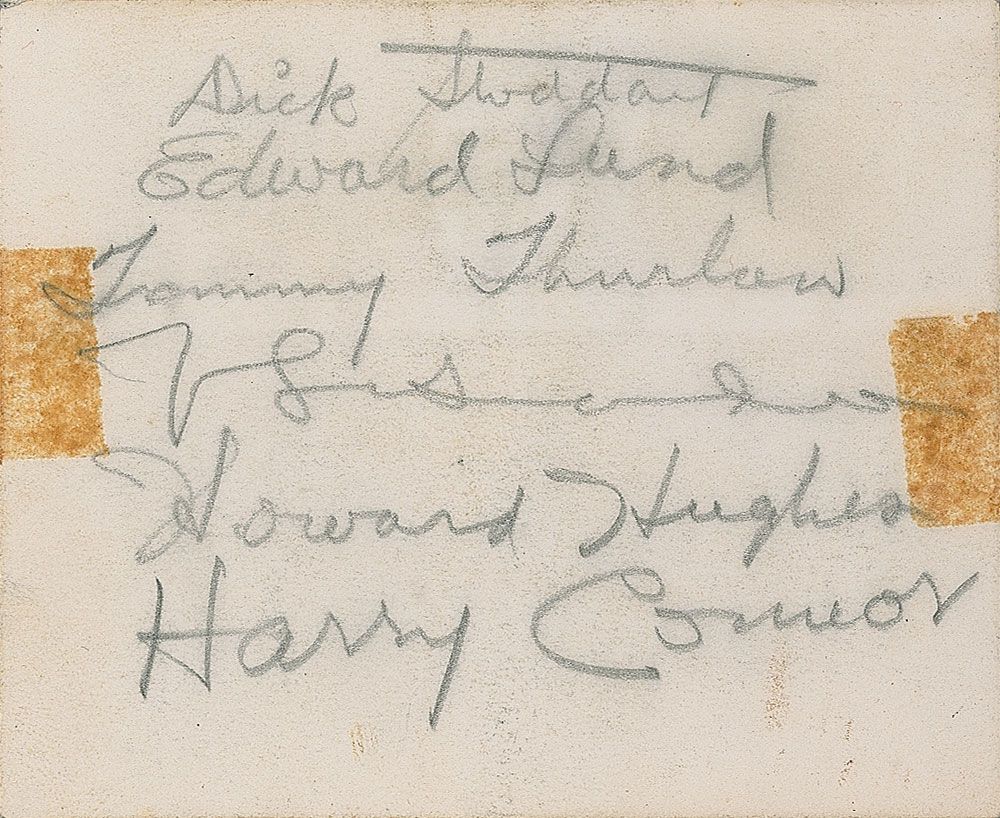 Dick Stoddart
Edward Lund
Tommy Thurlow
Howard Hughes
Harry Connor